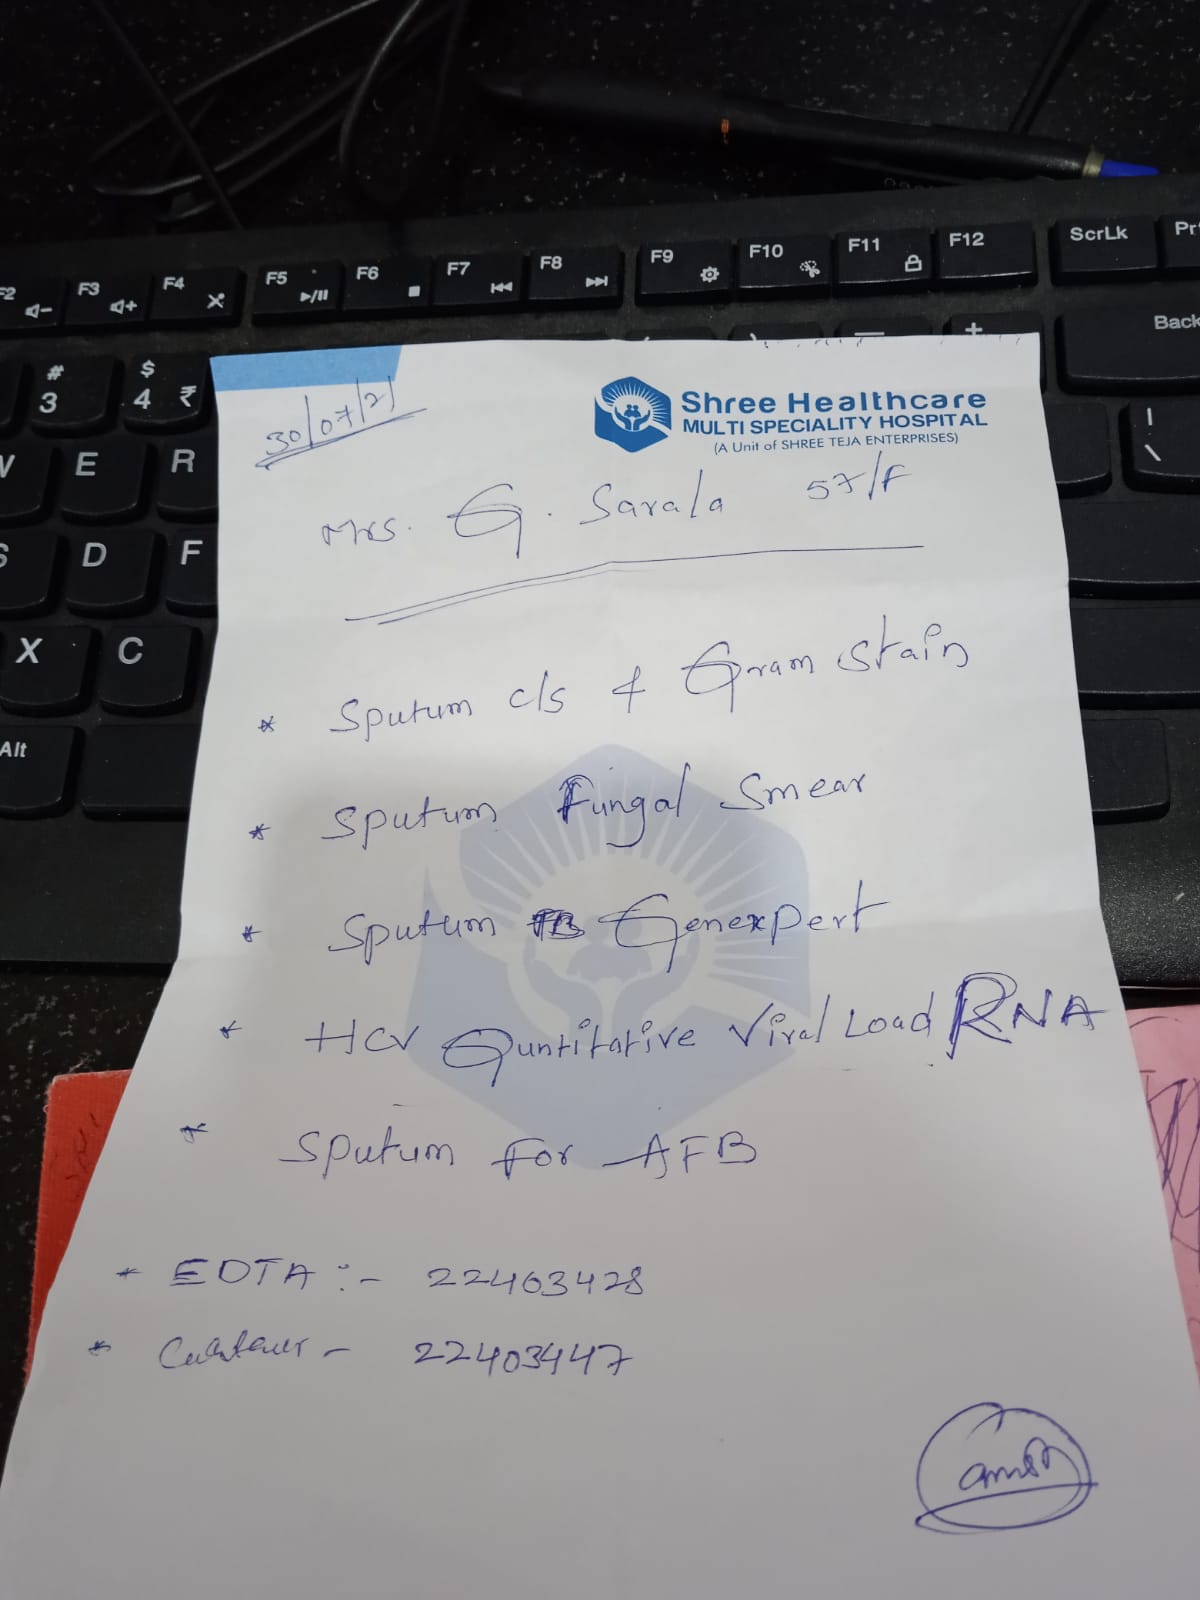 F2 F3 F4 F5 F6 F7 F8 F9 F10 F11 F12 ScrLk Pr
# 3 $ 4 ₹ + Back
E R
S D F
X C
Alt
30/07/21
Shree Healthcare
MULTI SPECIALITY HOSPITAL
(A Unit of SHREE TEJA ENTERPRISES)
Mrs. G. Sarala 57/F
* Sputum c/s & Gram Stain
* Sputum Fungal Smear
* Sputum TB Genexpert
* HCV Quntitative Viral Load RNA
* Sputum For AFB
* EDTA :- 22403428
* - 22403447